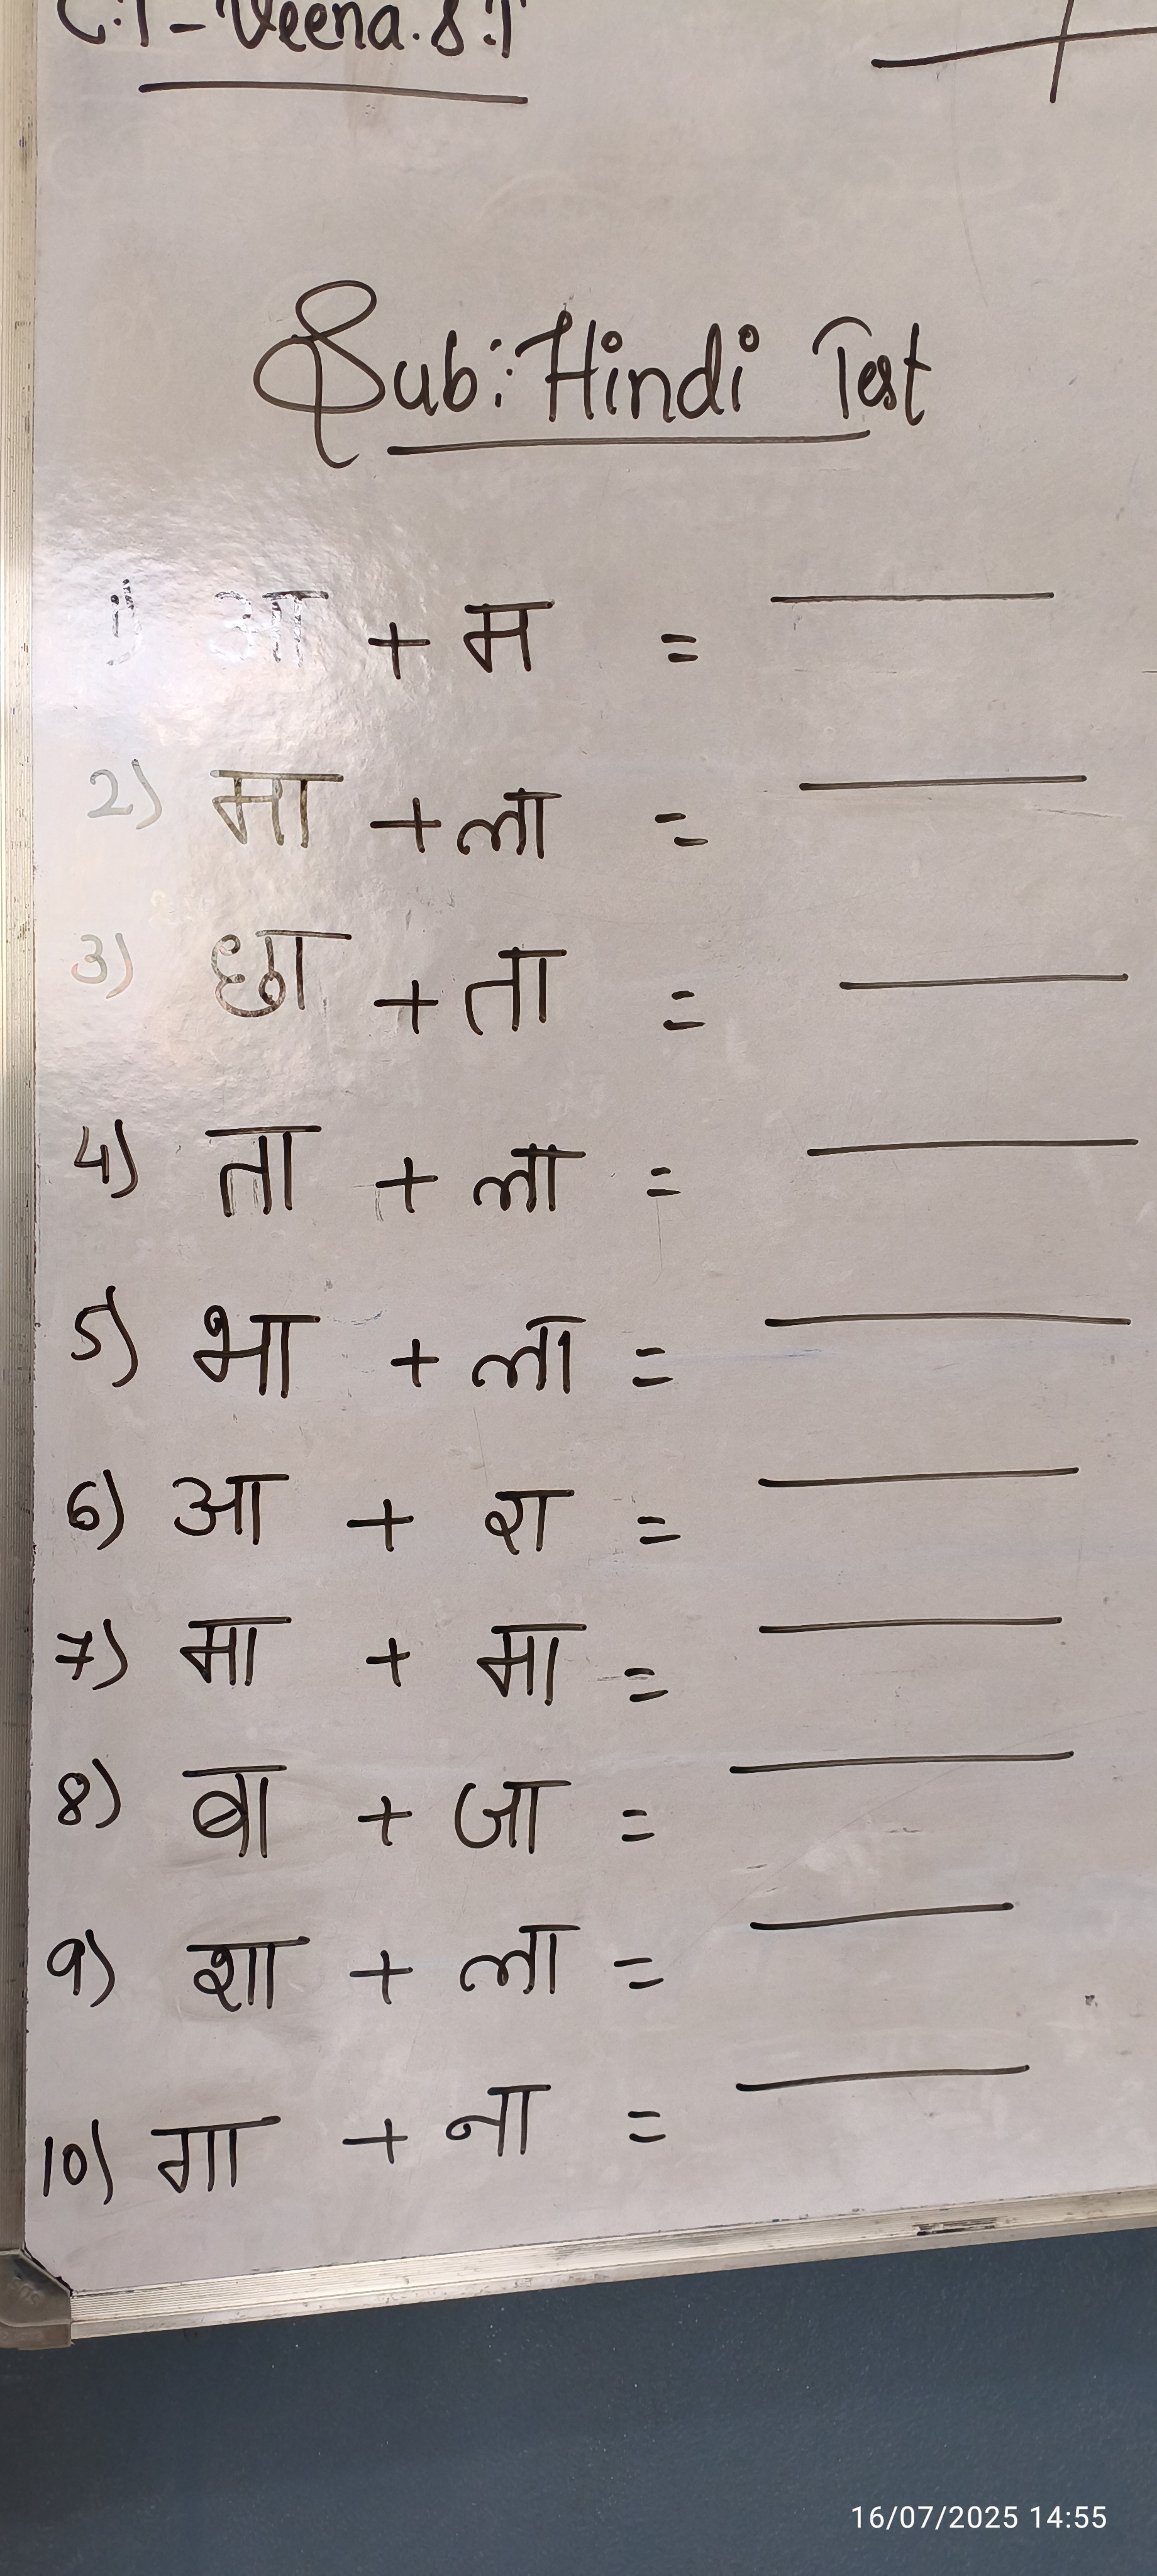 C.T - Veena.S.T
Sub: Hindi Test
1) आ + म = ______
2) मा + ला = ______
3) छा + ता = ______
4) ता + ला = ______
5) भा + ला = ______
6) आ + रा = ______
7) मा + मा = ______
8) बा + जा = ______
9) शा + ला = ______
10) गा + ना = ______
16/07/2025 14:55